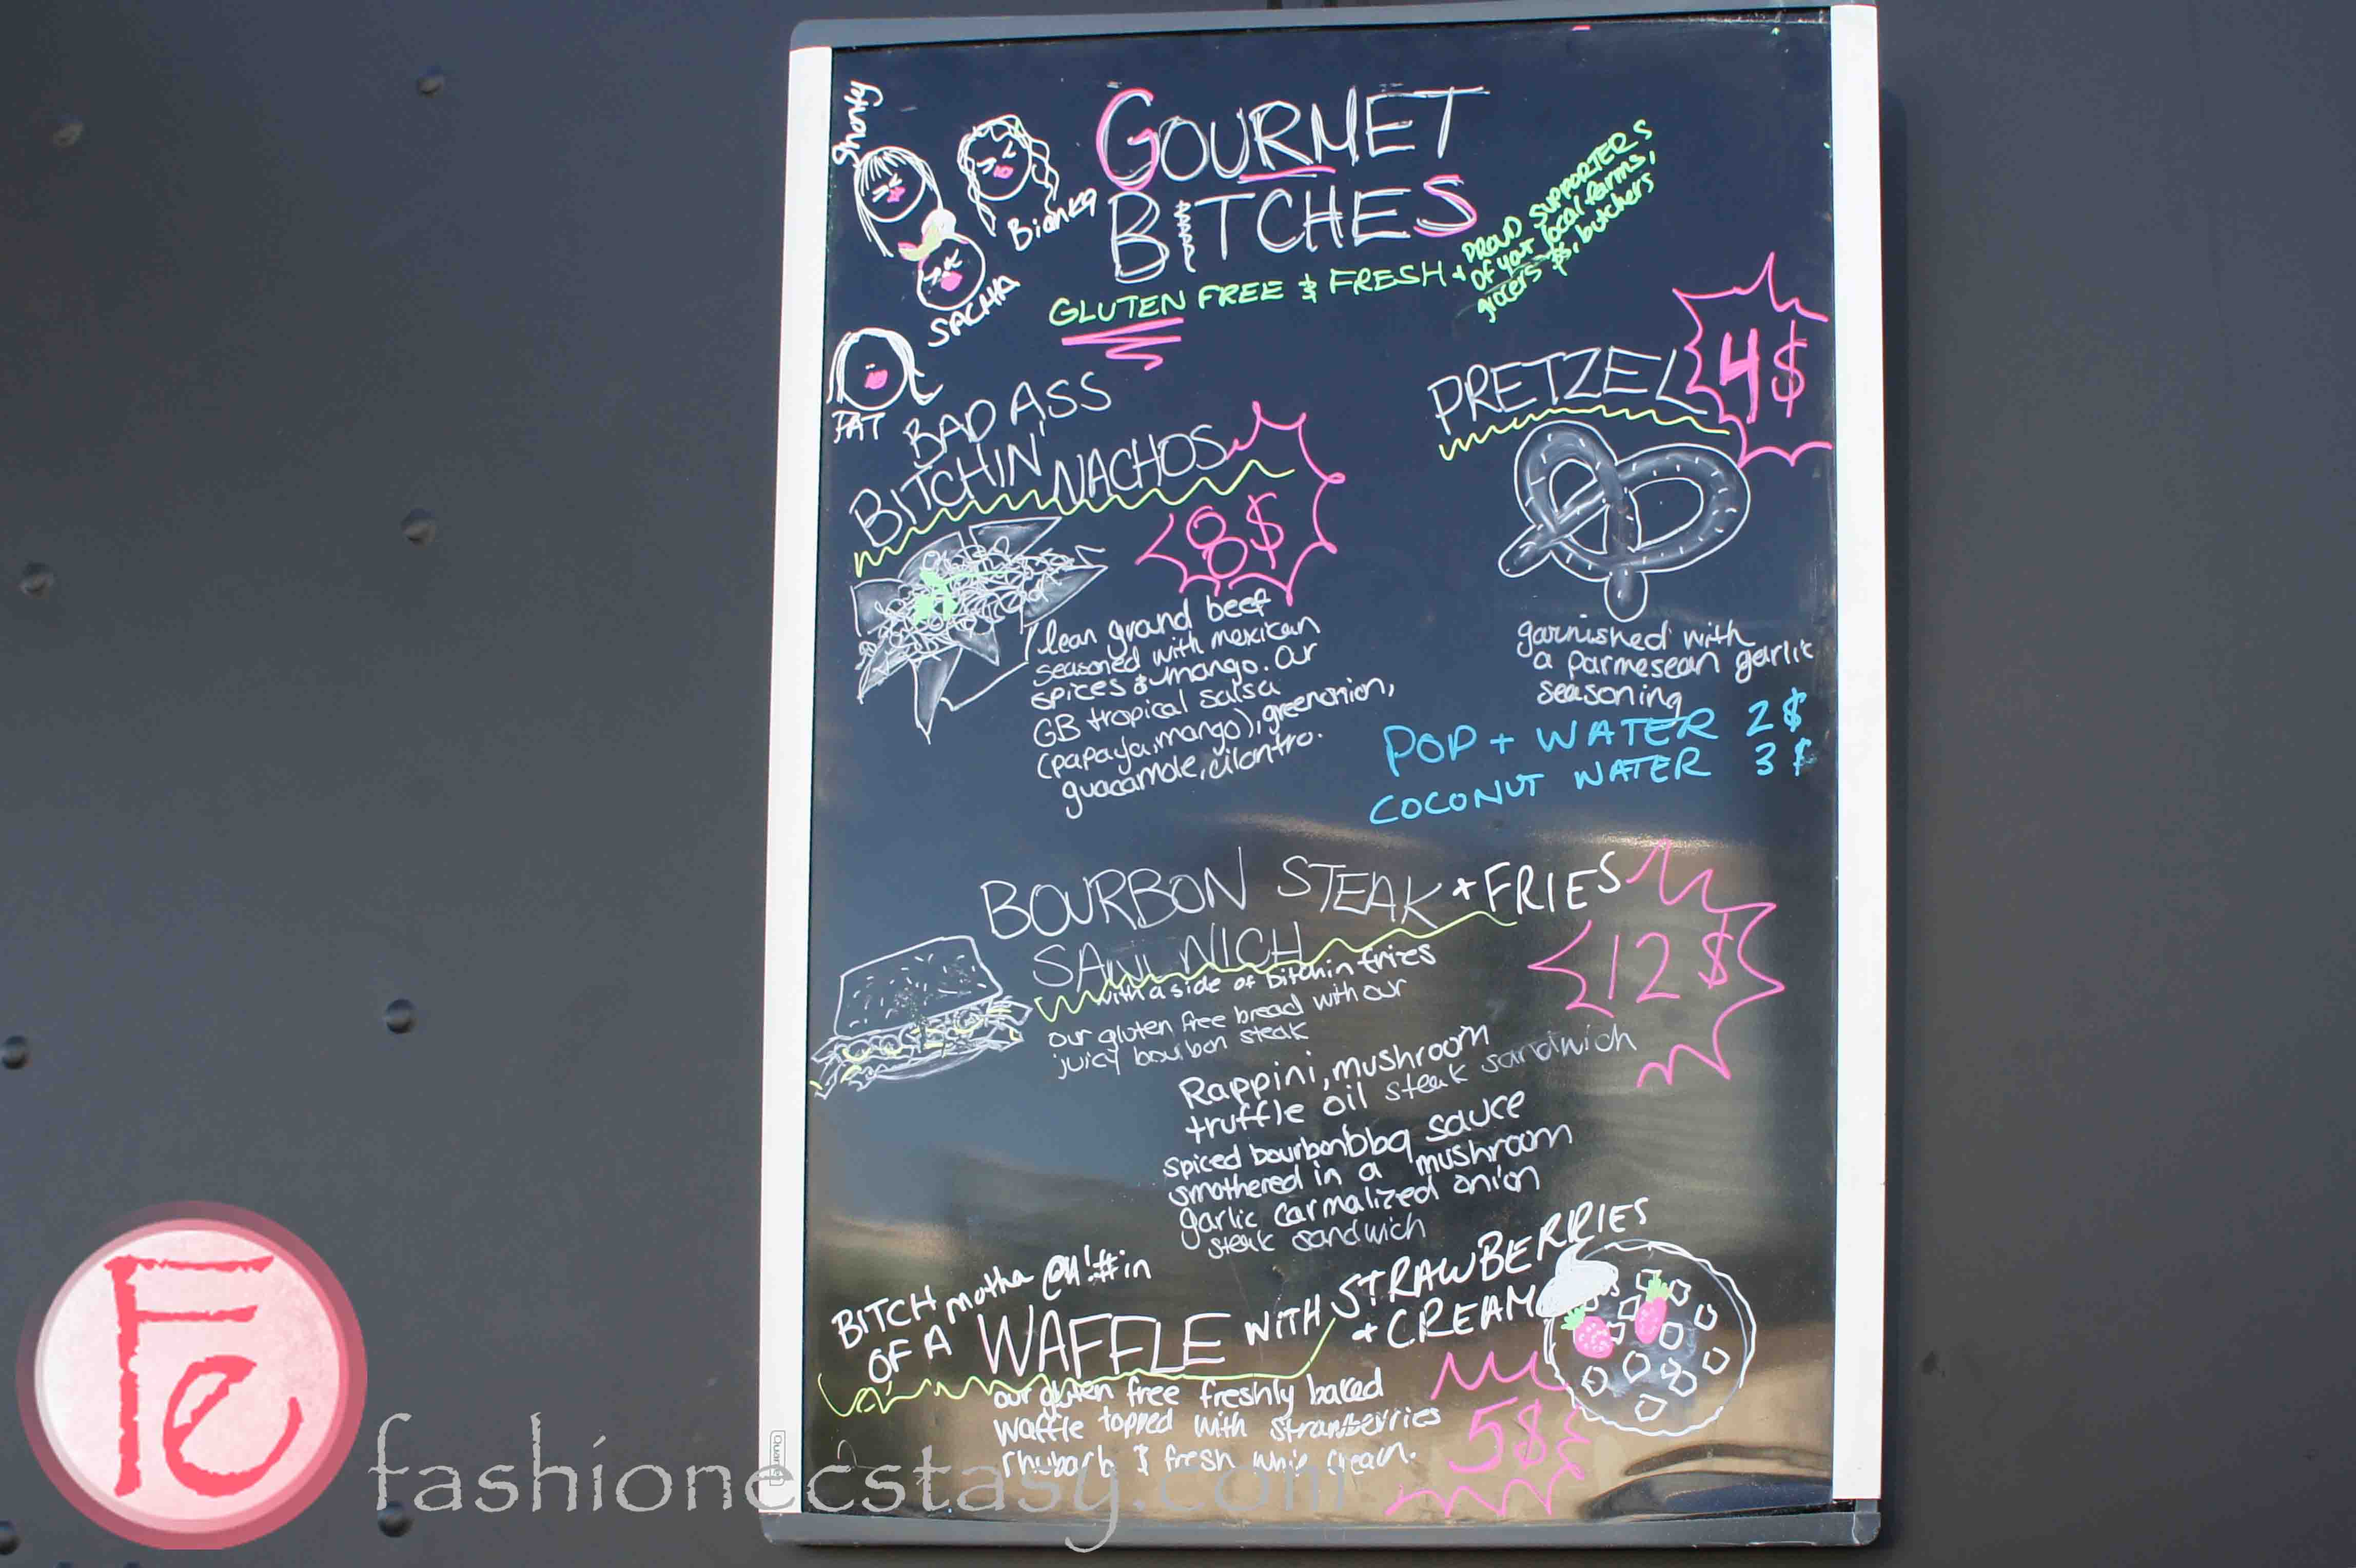 GOURMET
BITCHES
GLUTEN FREE & FRESH +
PROUD SUPPORTERS
of your local farms,
grocers $, butchers
Shonty
Bianka
SACHA
PAT
BAD ASS
BITCHIN' NACHOS
8$
lean ground beef
seasoned with mexican
spices & mango. Our
GB tropical salsa
(papaya, mango), greenonion,
guacamole, cilantro.
PRETZEL 4$
garnished with
a parmesean garlic
seasoning
POP + WATER 2$
COCONUT WATER 3$
BOURBON STEAK + FRIES
SANDWICH
12$
with a side of bitchin fries
our gluten free bread with our
juicy bourbon steak
Rappini, mushroom
truffle oil steak sandwich
spiced bourbon bbq sauce
smothered in a mushroom
garlic carmalized onion
steak sandwich
BITCH motha @#!#in
OF A WAFFLE WITH STRAWBERRIES
+ CREAM
our gluten free freshly baked
waffle topped with strawberries
rhubarb & fresh whip cream.
5$
Fe
fashionecstasy.com